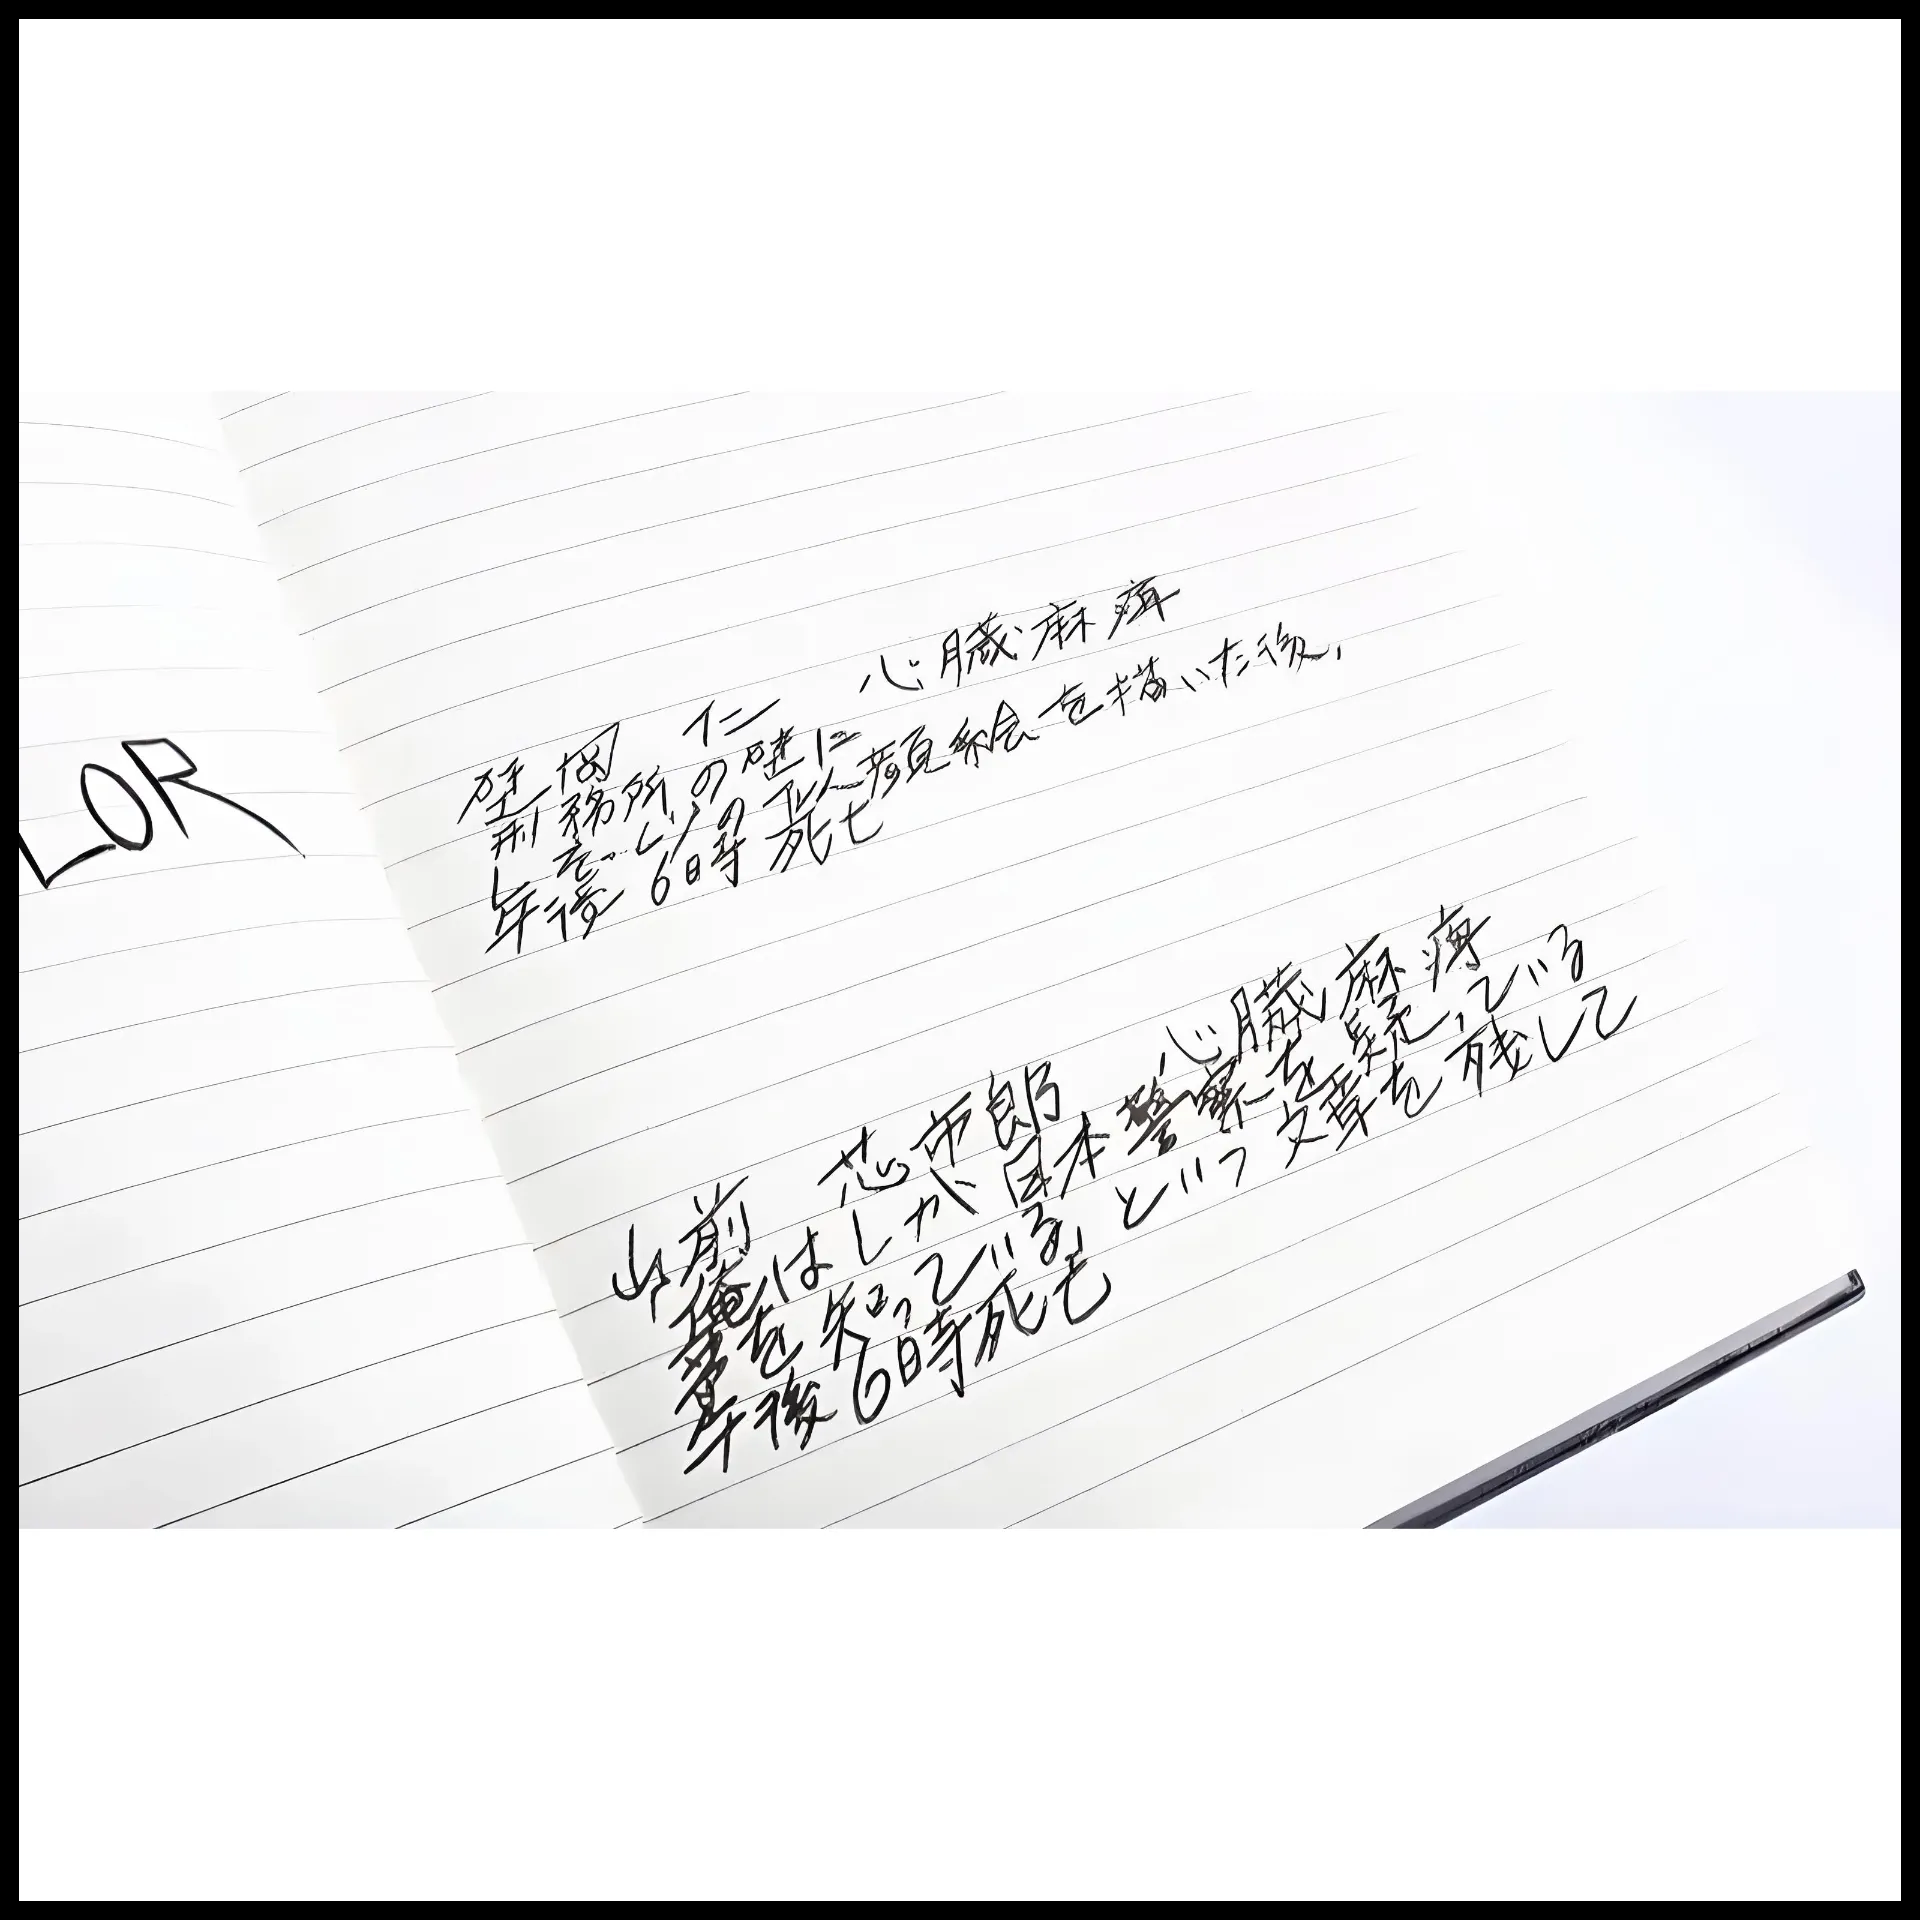 LOR
岡 仁 心臓麻痺
刑務所の壁に
そっくりの似顔絵を描いた後、
午後6時 死亡
山前 芯市郎 心臓麻痺
俺はしが日本警察を疑っている
を知っている という文章を残して
午後6時死亡